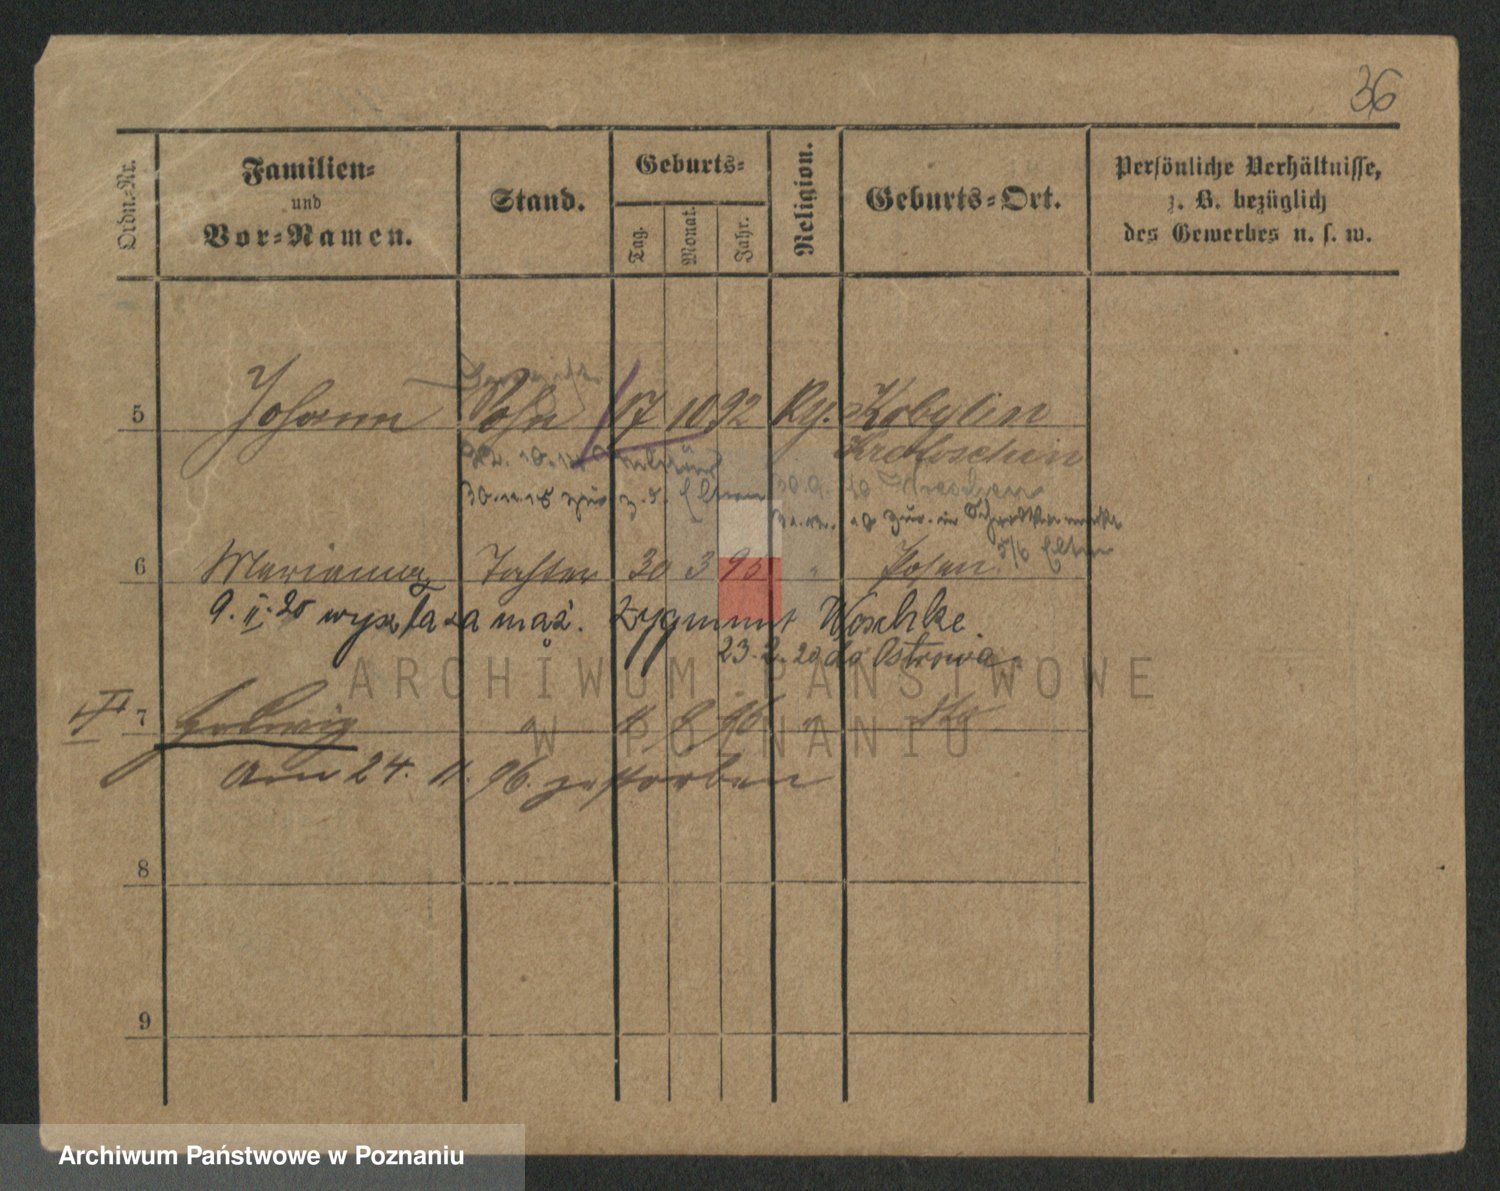 36
Ordn.-Nr.
Familien-
und
Vor-Namen.
Stand.
Geburts-
Tag.
Monat.
Jahr.
Religion.
Geburts-Ort.
Persönliche Verhältnisse,
z. B. bezüglich
des Gewerbes u. s. w.
5 Johann Sohn 17 10 92 Kobylin
Krotoschin
30.11.18 z. d. Eltern
6 Marianna Tochter 30 3 95 " Posen
9. II. 20 wyszła za mąż. Zygmunt Woschke
23. 2. 20 do Ostrowa
7 Hedwig " 11 96 "
Am 24. 11. 96. gestorben
8
9
ARCHIWUM PAŃSTWOWE
W POZNANIU
Archiwum Państwowe w Poznaniu